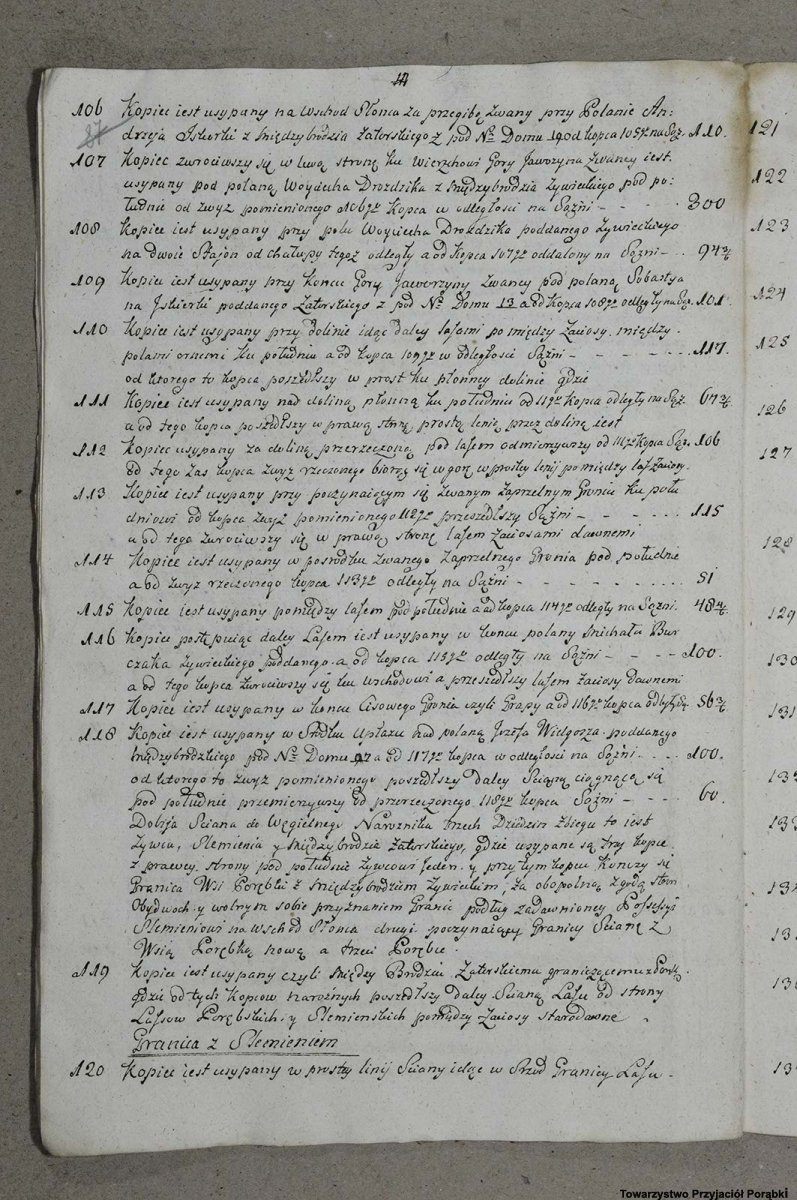 106 Kopiec iest usypany na Wschod Słonca za przegibę zwany przy Polanie An-
drzeja Iskurki z Międzybrodzia Zatorskiego z pod Nro Domu 19 od kopca 105go na Sąż. 110.
107 Kopiec zwrociwszy się w lewą stronę ku Wierzchowi Gory Jaworzyna Zwaney iest
usypany pod polaną Woyciecha Drozdzika z Międzybrodzia Zywieckiego pod po-
łudnie od zwyz pomienionego 106go kopca w odległosci na Sążni - - - - 300
108 Kopiec iest usypany przy polu Woyciecha Drozdzika poddanego Zywieckiego
na dwoie Stajon od chałupy tegoż odległy a od kopca 107go oddalony na Sążni - - 94
109 Kopiec iest usypany przy Koncu Gory Jaworzyny Zwaney pod polaną Sobastya
na Iskierki poddanego Zatorskiego z pod Nro Domu 13 a od Kopca 108go odległy na Sąż. 101
110 Kopiec iest usypany przy dolinie idąc daley lasami pomiędzy zaciosy między
polami ku południu a od kopca 109go w odległosci Sążni - - - - 117.
od ktorego to kopca poszedłszy w prost ku płonney dolinie gdzie
111 Kopiec iest usypany nad doliną płonną ku południu od kopca odległy na Sąż. 67
a od tego kopca poszedłszy w prawą stronę prostą lenią przez dolinę iest
112 Kopiec usypany za doliną przerzeczoną pod lasem odmierzywszy od 111go Kopca Sąż. 106
Od tego zas kopca zwyz rzeczonego biorąc się w gorę w prostey lenij pomiędzy las zaciosy.
113 Kopiec iest usypany przy poczynaiącym się zwanym Zaprzelnym Groniu ku połu
dniowi od kopca zwyż pomienionego 112go przeszedłszy Sążni - - - - 115
a od tego zwrociwszy się w prawą stronę lasem Zaciosami dawnemi
114 Kopiec iest usypany w posrodku zwanego Zaprzelnego Gronia pod południe
a od zwyz rzeczonego kopca 113go odległy na Sążni - - - - - - - 51
115 Kopiec iest usypany pomiędzy lasem pod południe a od kopca 114go odległy na Sążni. 48
116 Kopiec postępuiąc daley Lasem iest usypany w koncu polany Michała Bur
czaka Zywieckiego poddanego a od kopca 115go odległy na Sążni - - - - 100.
a od tego kopca zwrociwszy się ku wschodowi a przeszedłszy lasem zaciosy Dawnemi
117 Kopiec iest usypany w koncu Cisowego Gronia czyli Grapy a od 116go kopca odległy Są. 56
118 Kopiec iest usypany w Srodku Upłazu nad polaną Jozefa Wielgosza poddanego
Międzybrodzkiego pod Nro Domu 27 a od 117go kopca w odległosci na Sążni - - - 100.
od ktorego to zwyz pomienionego poszedłszy daley Scianą ciągnącą się
pod południe przemierzywszy od przerzeczonego 118go kopca Sążni - - - - 60.
Dobija Sciana do Węgielnego Naroznika trzech Dziedzin zbiegu to iest
Zywca, Slemienia y Międzybrodzia Zatorskiego, gdzie usypane są trzy kopce
z prawey strony pod południe Zywcowi Jeden y przy tym kopcu Konczy się
Granica Wsi Porębki z Międzybrodziem Zywieckim, za obopolną zgodą stron
Obydwoch y wolnym sobie przyznaniem Granic podług zadawnioney Possessyi
Slemieniowi na Wschod Słonca drugi poczynaiący Granicy Scianę z
Wsią Porębką nową a trzeci Porębce.
119 Kopiec iest usypany czyli Między Brodziu Zatorskiemu graniczącemu z
gdzie od tych Kopcow narożnych poszedłszy daley Scianą Lasu od strony
Lassow Porębskich y Slemienskich pomiędzy Zaciosy starodawne
Granica z Slemieniem
120 Kopiec iest usypany w prostey linij Sciany idąc w Srzod Granicy Lasu -
121
122
123
124
125
126
127
128
129
130
131
Towarzystwo Przyjaciół Porąbki